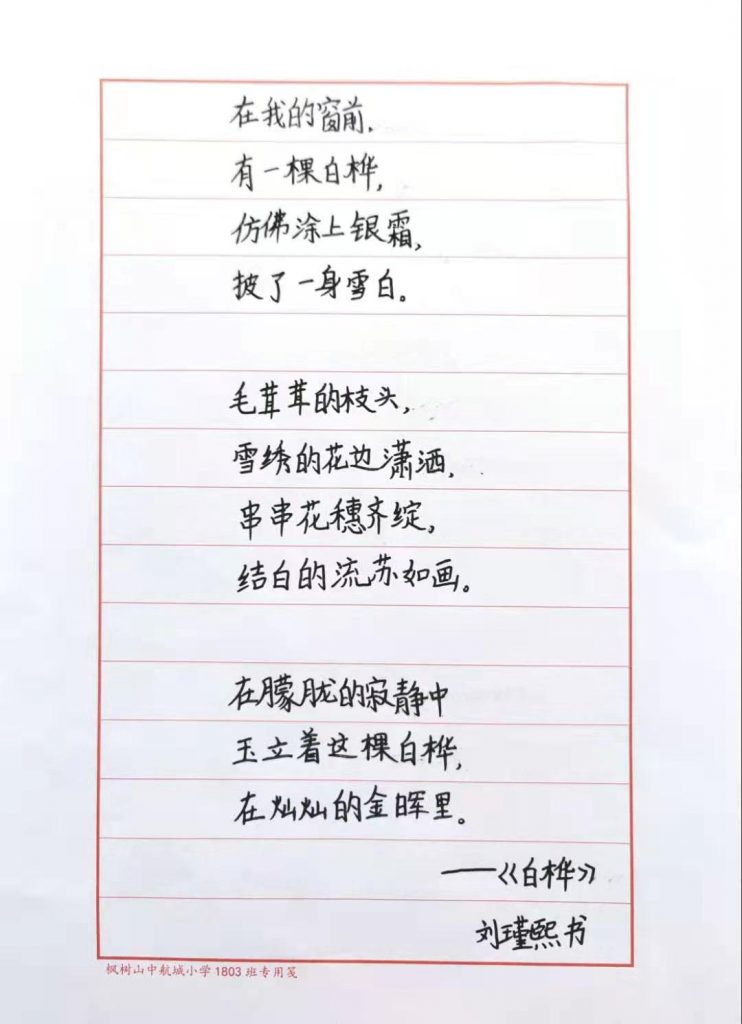 在我的窗前，
有一棵白桦，
仿佛涂上银霜，
披了一身雪白。
毛茸茸的枝头，
雪绣的花边潇洒，
串串花穗齐绽，
结白的流苏如画。
在朦胧的寂静中
玉立着这棵白桦，
在灿灿的金晖里。
——《白桦》
刘瑾熙书
枫树山中航城小学1803班专用笺